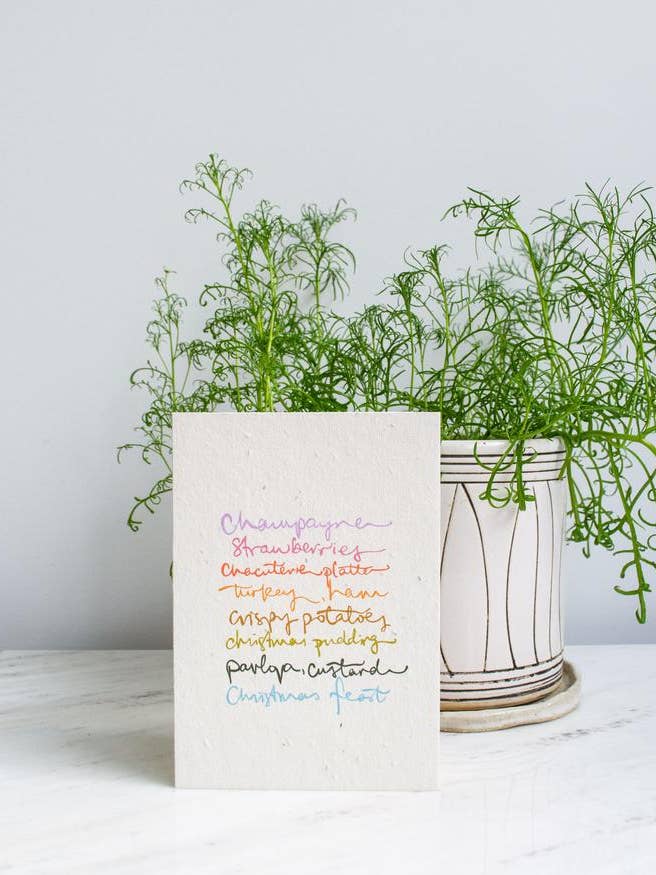 Champagne
Strawberries
Chacuterie platta
Turkey, ham
crispy potatoes
christmas pudding
pavlova, custard
Christmas feast